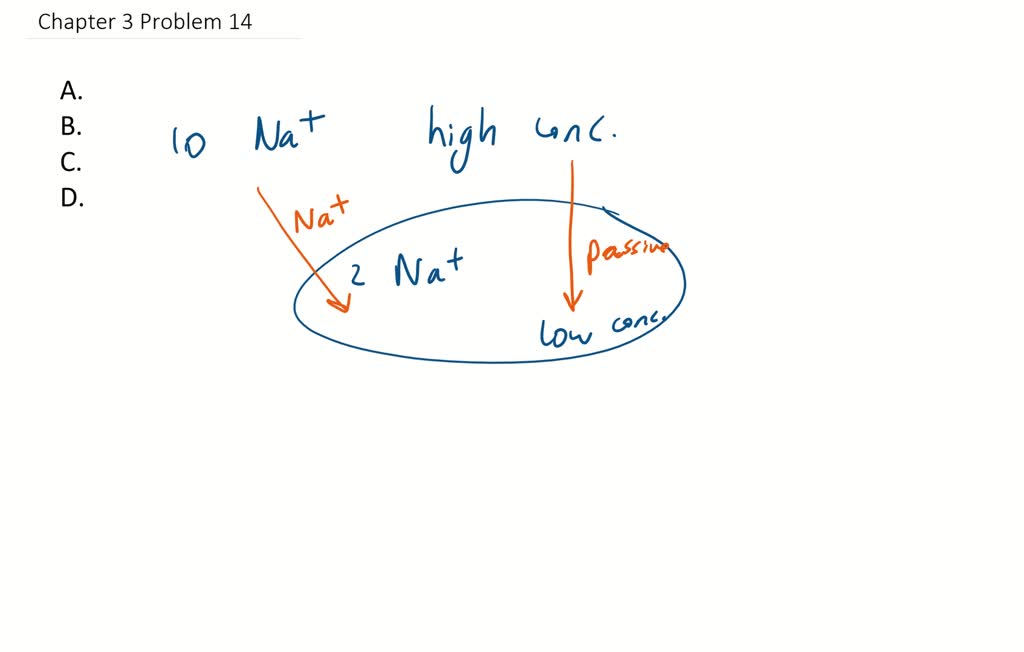 Chapter 3 Problem 14
A.
B.
C.
D.
10 Na+ high conc.
Na+
2 Na+
passive
low conc.